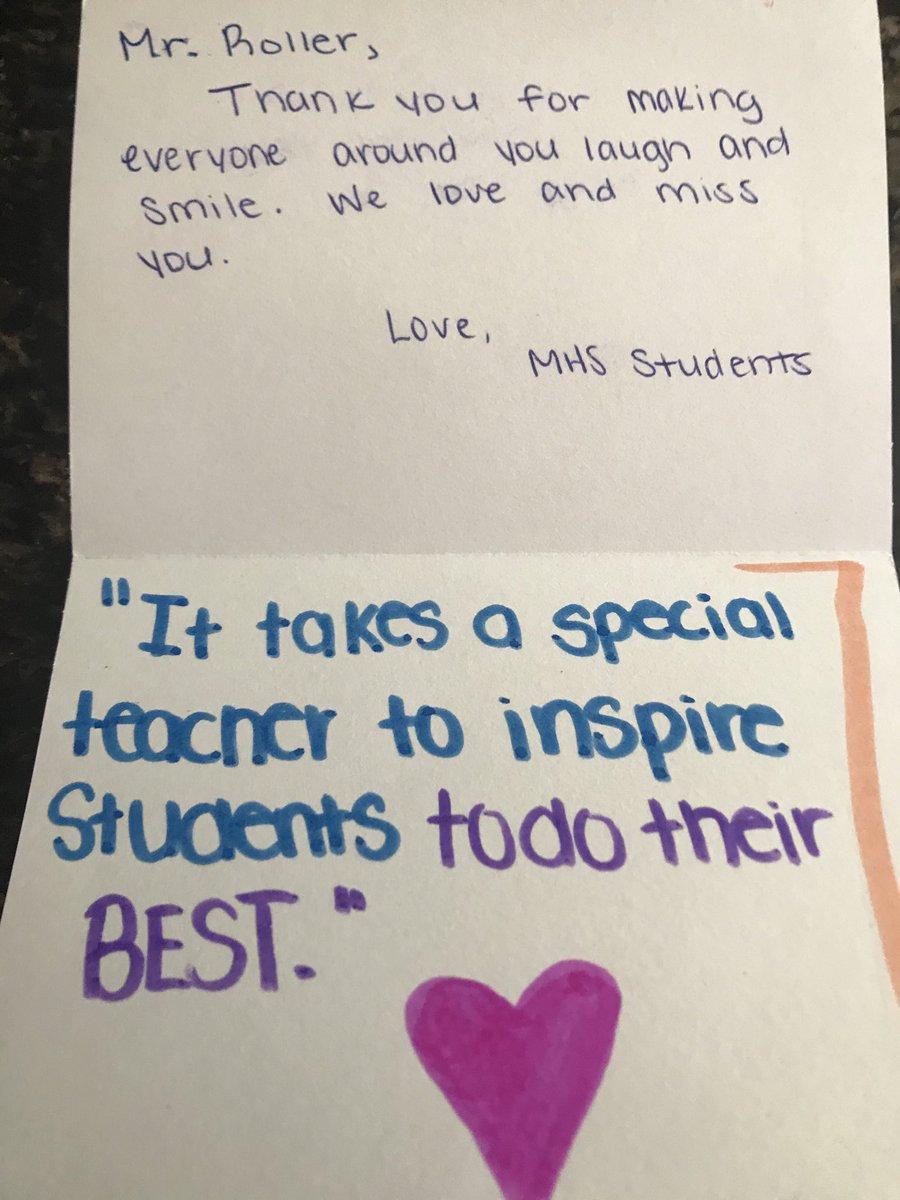 Mr. Roller,
Thank you for making
everyone around you laugh and
smile. We love and miss
you.
Love,
MHS Students
"It takes a special
teacher to inspire
Students to do their
BEST."